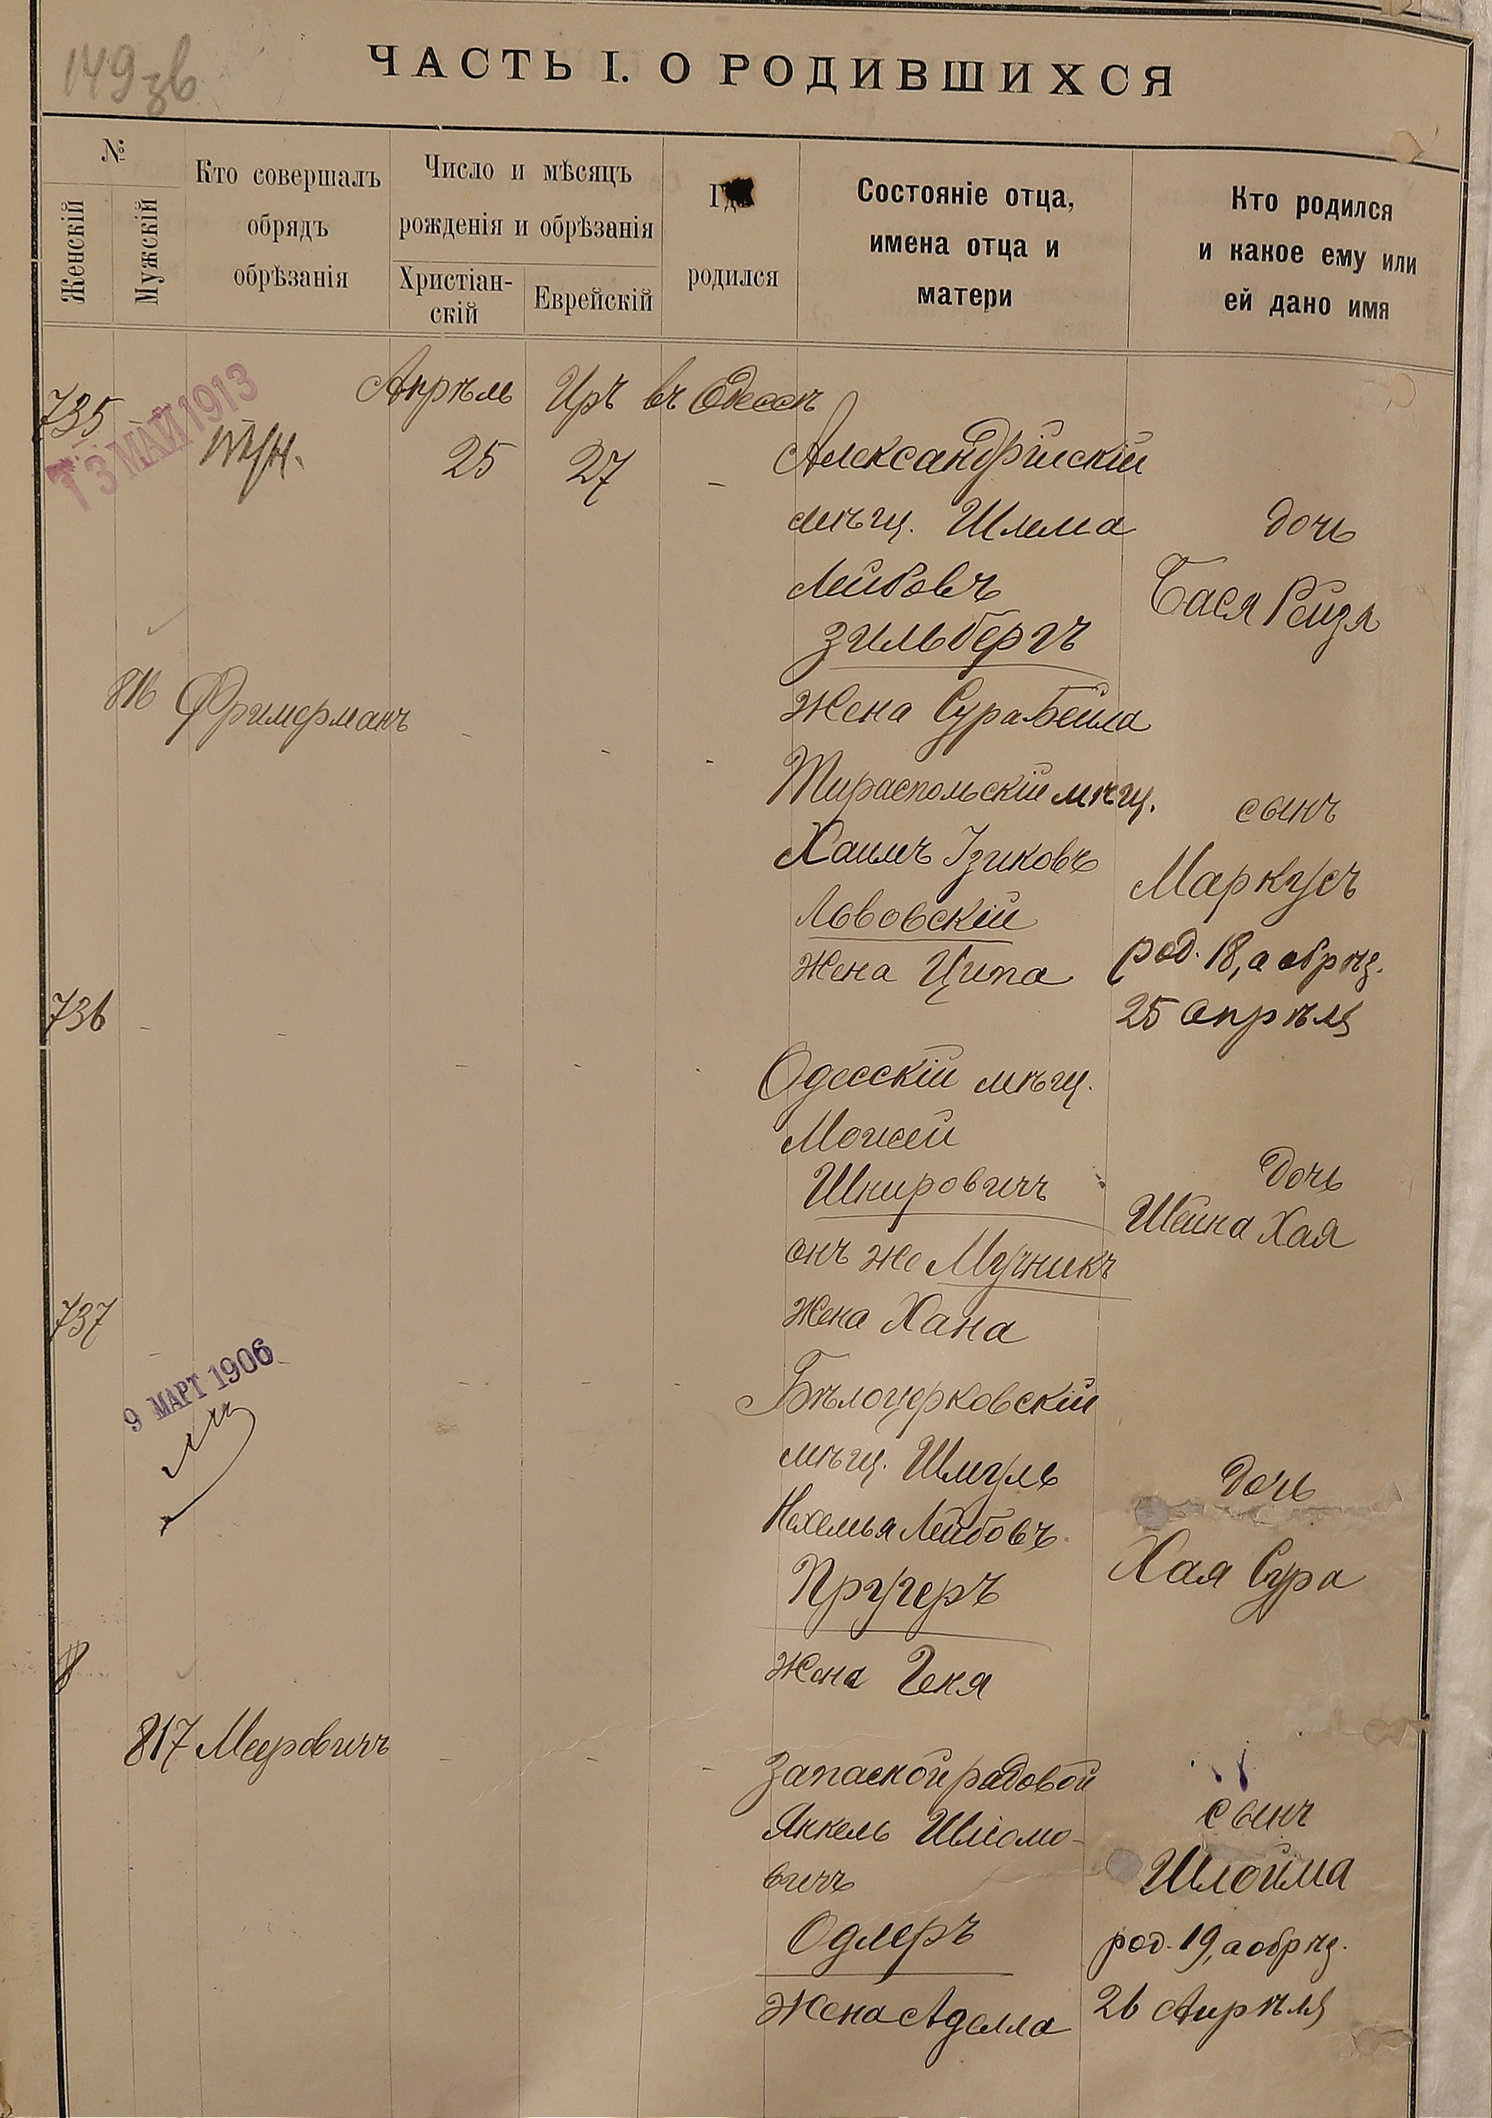 149 зв
ЧАСТЬ I. О РОДИВШИХСЯ
№
Женскій
Мужскій
Кто совершалъ
обрядъ
обрѣзанія
Число и мѣсяцъ
рожденія и обрѣзанія
Христіан-
скій
Еврейскій
родился
Состояніе отца,
имена отца и
матери
Кто родился
и какое ему или
ей дано имя
Апрѣль Іиръ въ Одессѣ
735
3 МАЙ 1913
25 27 -
Александрійскій
мѣщ. Шлема
Лейбовъ
Зильбергъ
Жена СураБейла
дочь
Бася Рейзя
816 Фримерманъ - - -
Тираспольскій мѣщ.
Хаимъ Ізиковъ
Львовскій
Жена Ципа
сынъ
Маркусъ
род. 18, а обрѣз.
25 апрѣля
736 - - - - -
Одесскій мѣщ.
Мойсей
Шнировичъ
онъ же Мучникъ
Жена Хана
Дочь
Шейна Хая
737 - - - - -
9 МАРТ 1906
Бѣлоцерковскій
мѣщ. Шмуль
Нехемья Лейбовъ
Пругеръ
Жена Геня
Дочь
Хая Сура
817 Мееровичъ - - -
Запасной рядовой
Янкель Шліомо-
вичъ
Одлеръ
Жена Аделла
сынъ
Шлойма
род. 19, а обрѣз.
26 Апрѣля